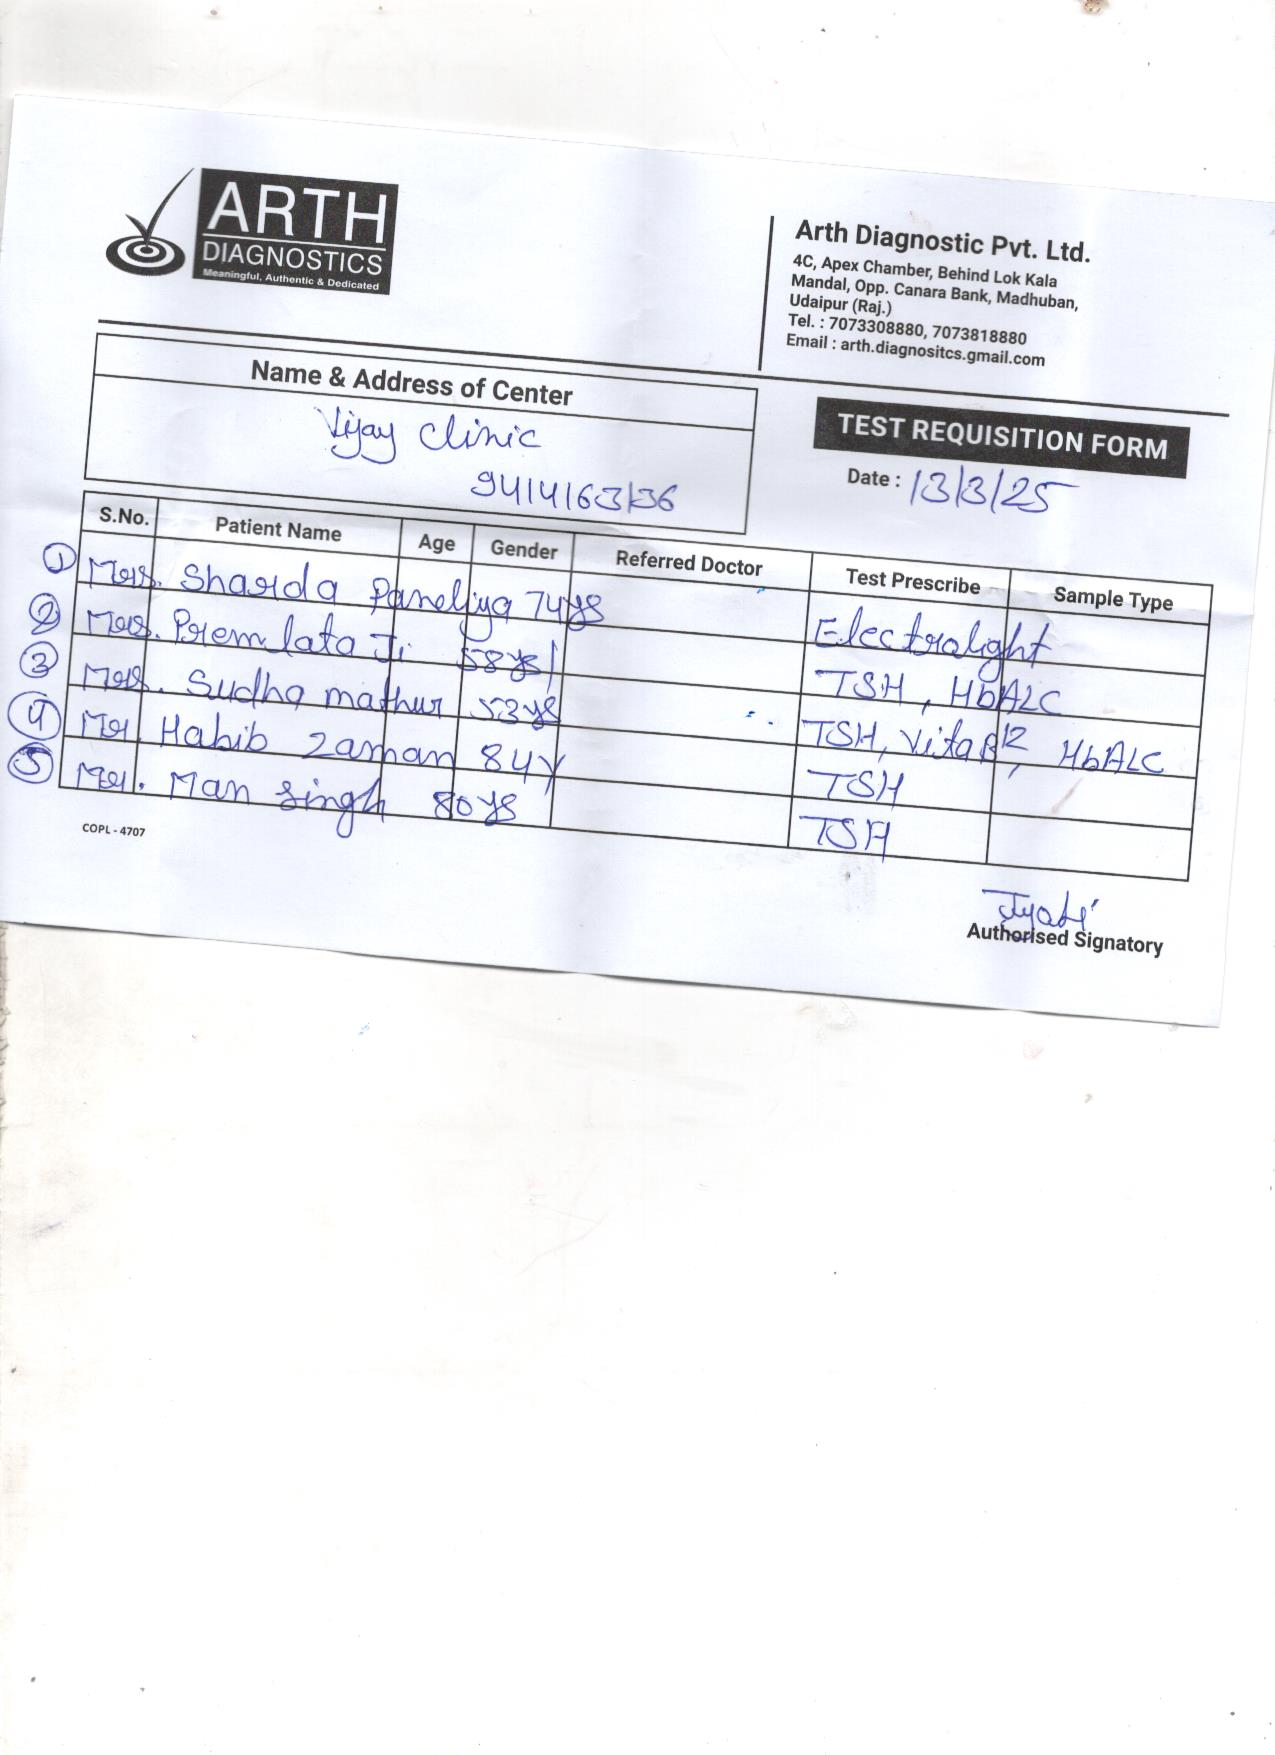 ARTH
DIAGNOSTICS
Meaningful, Authentic & Dedicated
Arth Diagnostic Pvt. Ltd.
4C, Apex Chamber, Behind Lok Kala
Mandal, Opp. Canara Bank, Madhuban,
Udaipur (Raj.)
Tel. : 7073308880, 7073818880
Email : arth.diagnositcs.gmail.com
Name & Address of Center
Vijay Clinic
9414163136
TEST REQUISITION FORM
Date : 13/3/25
S.No. Patient Name Age Gender Referred Doctor Test Prescribe Sample Type
1 Mrs. Sharda Paneliya 74ys Electralight
2 Mrs. Premlata Ji 58ys TSH, HbALC
3 Mrs. Sudha mathur 53ys TSH, Vita B12, HbALC
4 Mr. Habib Zaman 84y TSH
5 Mr. Man Singh 80ys TSH
COPL - 4707
Jyoti
Authorised Signatory